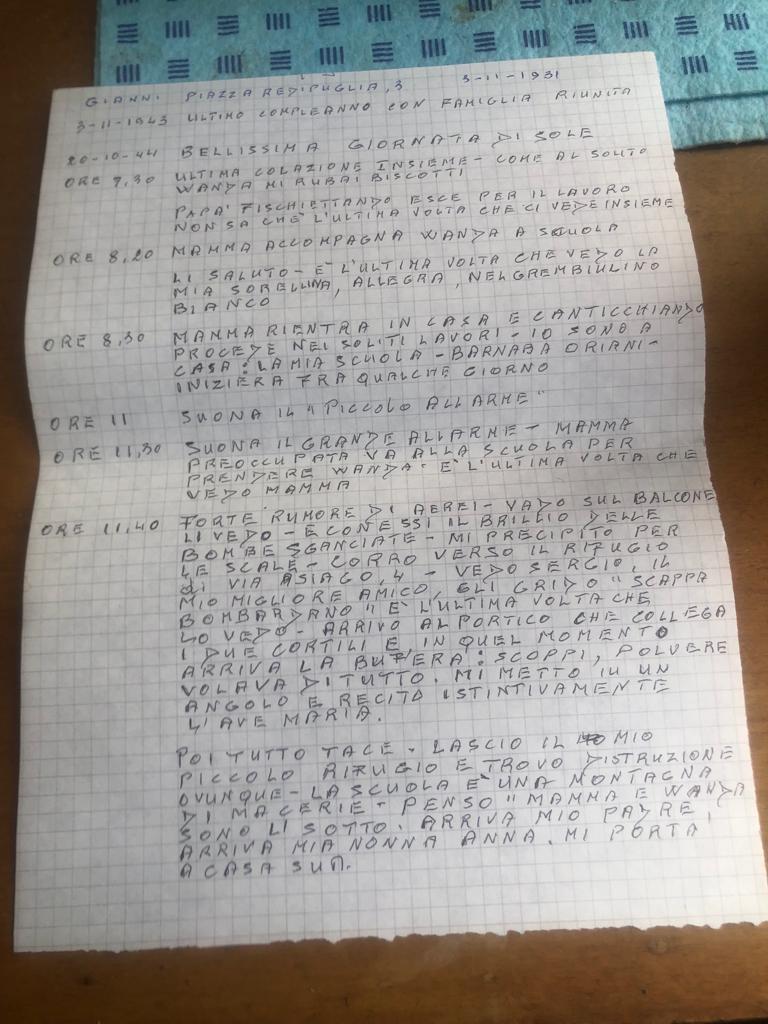 GIANNI PIAZZA REDIPUGLIA, 3 3-11-1931
3-11-1943 ULTIMO COMPLEANNO CON FAMIGLIA RIUNITA
20-10-44 BELLISSIMA GIORNATA DI SOLE
ORE 7,30 ULTIMA COLAZIONE INSIEME - COME AL SOLITO
WANDA MI RUBA I BISCOTTI
PAPA' FISCHIETTANDO ESCE PER IL LAVORO
NON SA CHE È L'ULTIMA VOLTA CHE CI VEDE INSIEME
ORE 8,20 MAMMA ACCOMPAGNA WANDA A SCUOLA
LI SALUTO - E' L'ULTIMA VOLTA CHE VEDO LA
MIA SORELLINA, ALLEGRA, NEL GREMBIULINO
BIANCO
ORE 8,30 MAMMA RIENTRA IN CASA E CANTICCHIANDO
PROCEDE NEI SOLITI LAVORI - IO SONO A
CASA: LA MIA SCUOLA - BARNABA ORIANI -
INIZIERA FRA QUALCHE GIORNO
ORE 11 SUONA IL "PICCOLO ALLARME"
ORE 11,30 SUONA IL GRANDE ALLARME - MAMMA
PREOCCUPATA VA ALLA SCUOLA PER
PRENDERE WANDA. E' L'ULTIMA VOLTA CHE
VEDO MAMMA
ORE 11,40 FORTE RUMORE DI AEREI - VADO SUL BALCONE
LI VEDO - E CON ESSI IL BRILLIO DELLE
BOMBE SGANCIATE - MI PRECIPITO PER
LE SCALE - CORRO VERSO IL RIFUGIO
DI VIA ASIAGO, 4 - VEDO SERGIO, IL
MIO MIGLIORE AMICO, GLI GRIDO "SCAPPA
BOMBARDANO" E' L'ULTIMA VOLTA CHE
LO VEDO - ARRIVO AL PORTICO CHE COLLEGA
I DUE CORTILI E IN QUEL MOMENTO
ARRIVA LA BUFERA: SCOPPI, POLVERE
VOLAVA DI TUTTO. MI METTO IN UN
ANGOLO E RECITO ISTINTIVAMENTE
L'AVE MARIA.
POI TUTTO TACE - LASCIO IL MIO
PICCOLO RIFUGIO E TROVO DISTRUZIONE
OVUNQUE - LA SCUOLA E' UNA MONTAGNA
DI MACERIE - PENSO "MAMMA E WANDA
SONO LI SOTTO. ARRIVA MIO PADRE,
ARRIVA MIA NONNA ANNA. MI PORTA
A CASA SUA.